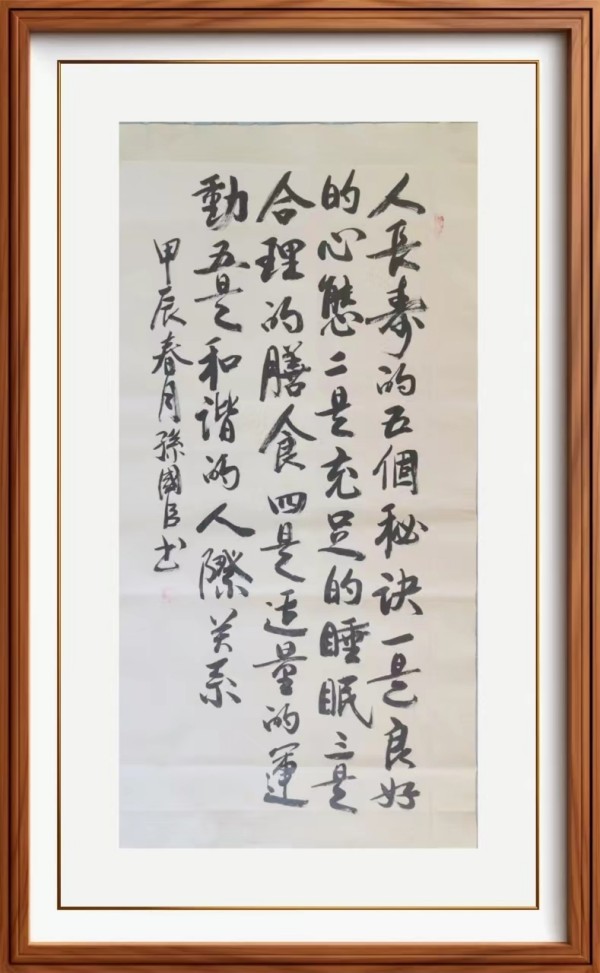 人長壽的五個秘訣一是良好
的心態二是充足的睡眠三是
合理的膳食四是适量的運
動五是和谐的人際关系
甲辰春月孫國臣书